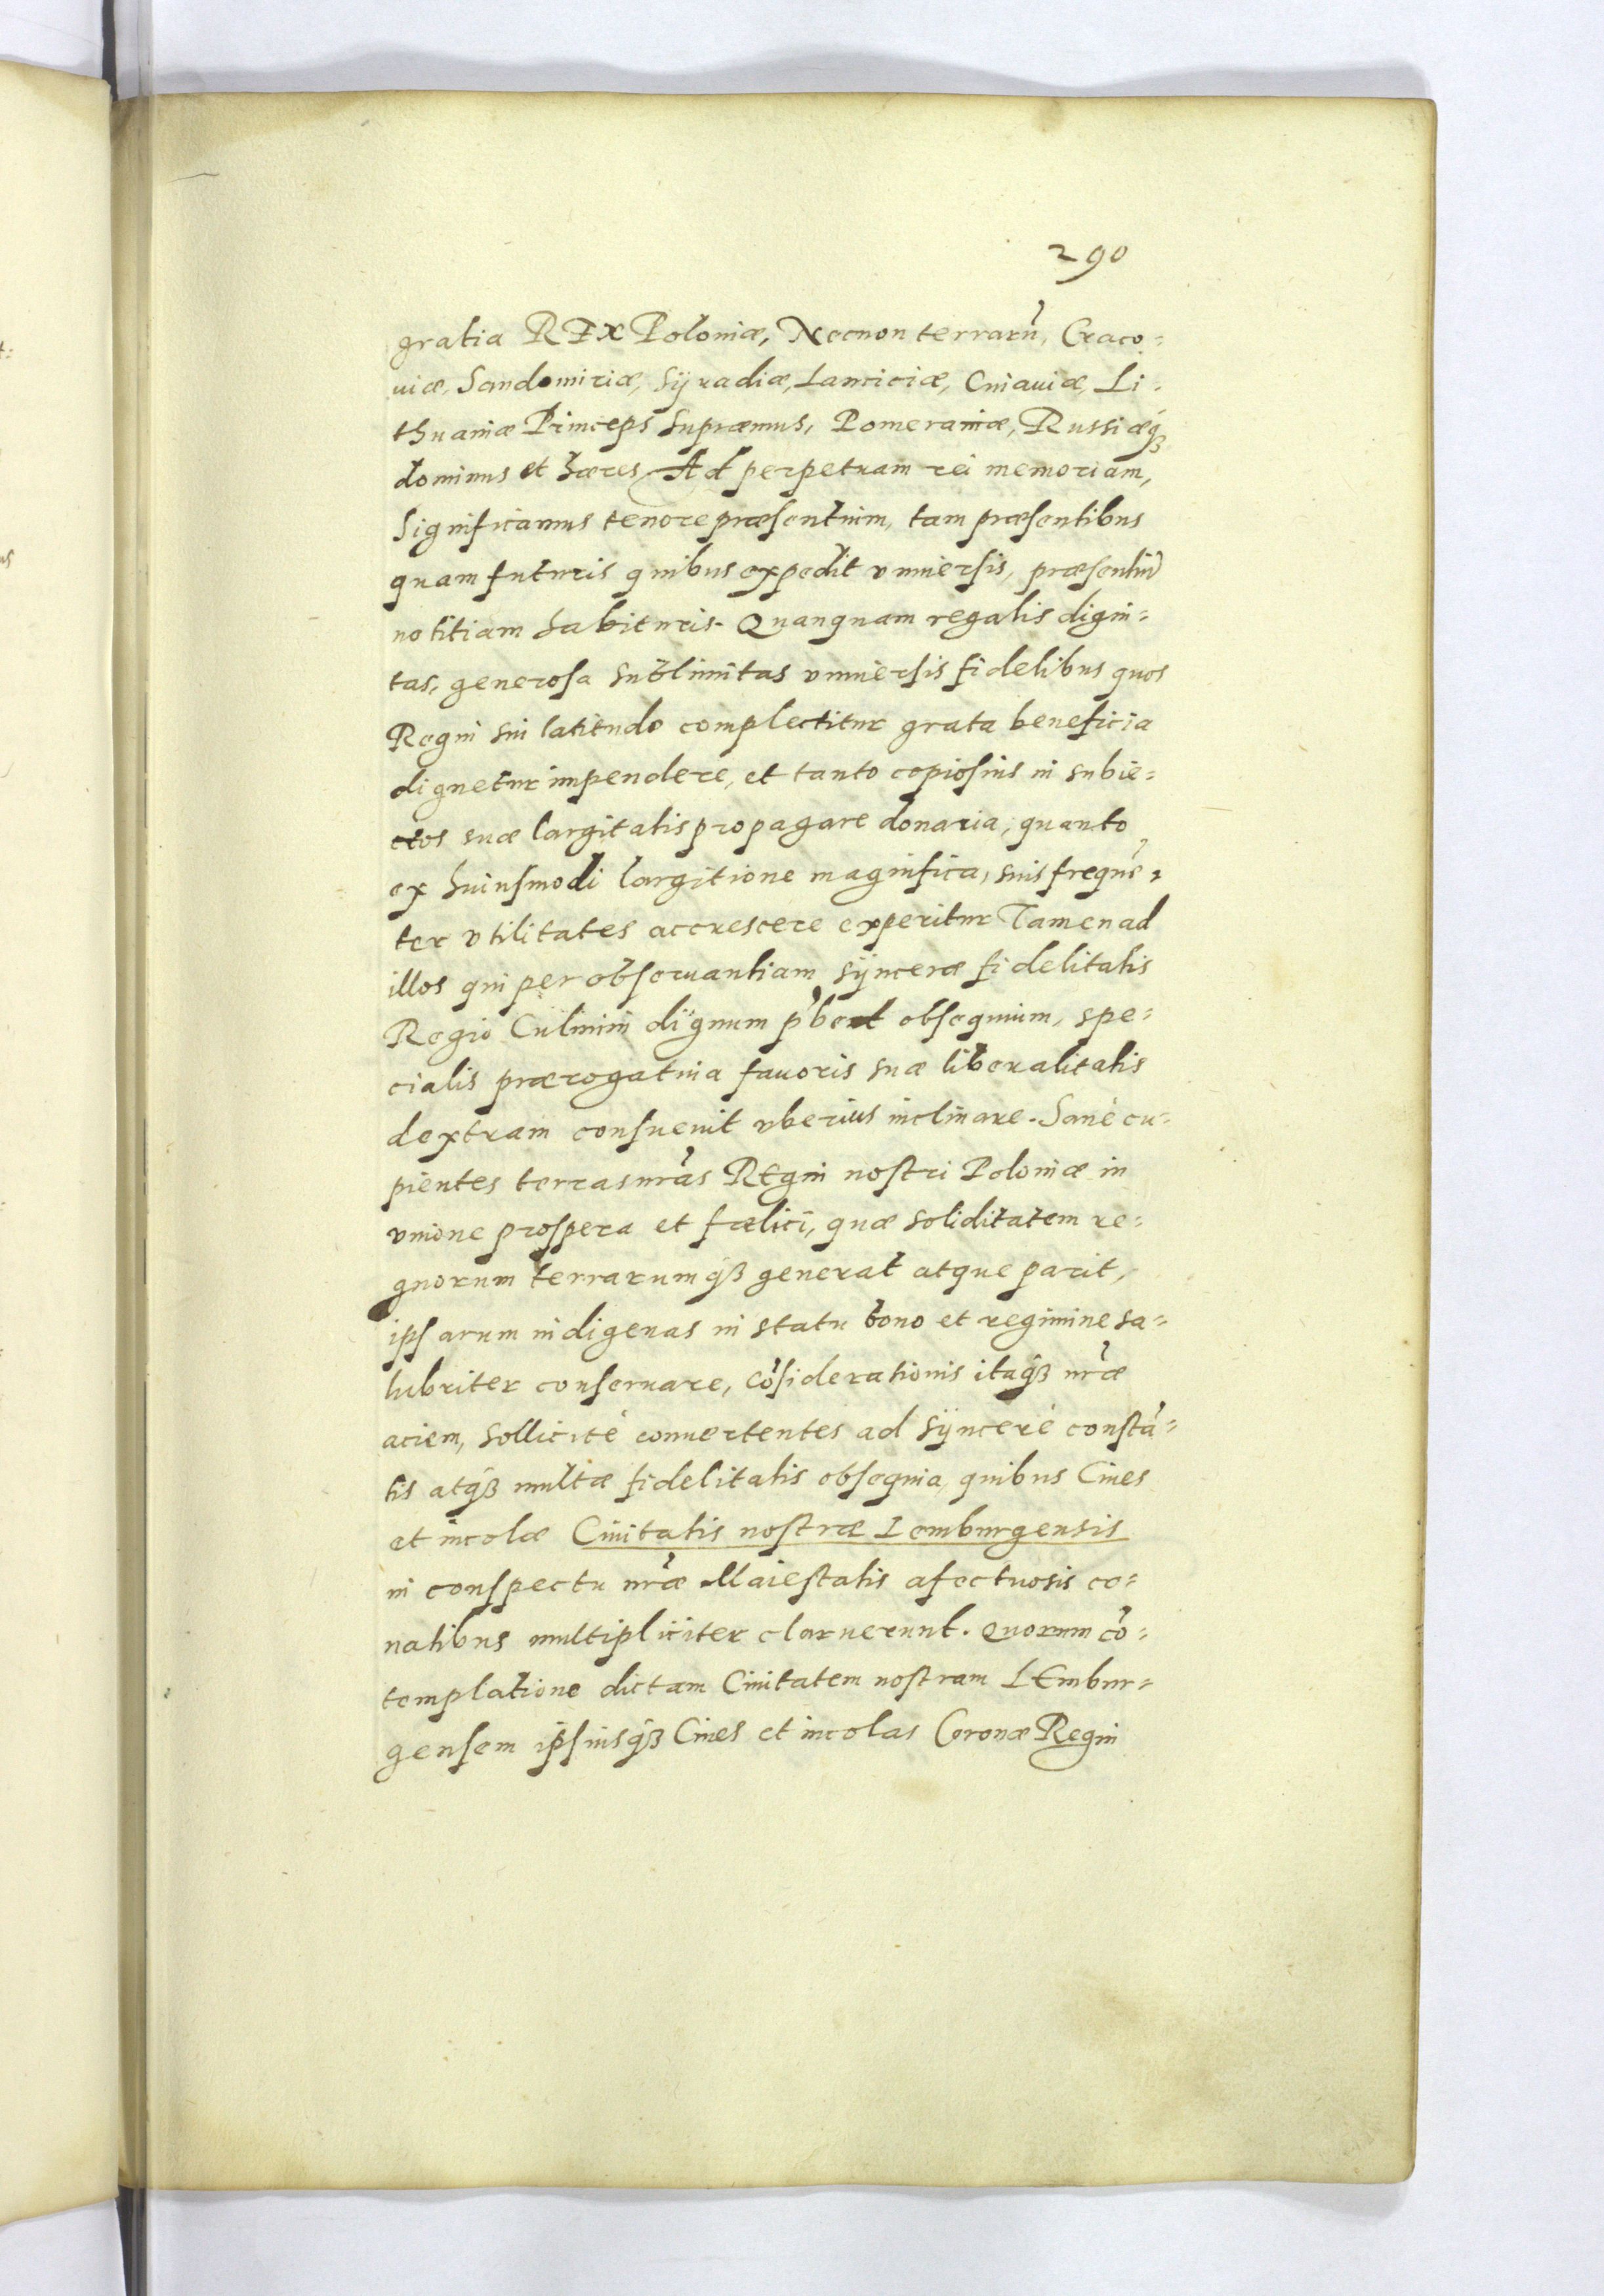 290
gratia REX Poloniæ, Necnon terrarū, Craco=
uiæ, Sandomiriæ, Sÿradiæ, Lanciciæ, Cuiauiæ, Li=
thuaniæ Princeps Supræmus, Pomeraniæ, Russiæq́ꝫ
dominus et hæres Ad perpetuam rei memoriam,
Significamus tenore præsentium, tam præsentibus
quam futuris quibus expedit vniuersis, præsentiū
notitiam habituris. Quanquam regalis digni=
tas, generosa sublimitas vniuersis fidelibus quos
Regni sui latitudo complectitur grata beneficia
dignetur impendere, et tanto copiosius in subie=
ctos suæ largitatis propagare donaria, quanto
ex huiusmodi largitione magnifica, suis frequē=
ter vtilitates accrescere experitur Tamen ad
illos qui per obseruantiam sÿnceræ fidelitatis
Regio Culmini dignum p̄bent obsequium, spe=
cialis prærogatiua fauoris suæ liberalitatis
dextram consueuit vberius inclinare. Sanè cu=
pientes terras nr̄as REgni nostri Poloniæ in
vnione prospera et fælici, quæ soliditatem re=
gnorum terrarumq́ꝫ generat atque parit,
ipsarum indigenas in statu bono et regimine sa=
lubriter conseruare, Cōsiderationis itaq́ꝫ nr̄æ
aciem, sollicitè conuertentes ad sÿncerè constā=
tis atq́ꝫ multæ fidelitatis obsequia, quibus Ciues
et incolæ Ciuitatis nostræ Lemburgensis
in conspectu nr̄æ Maiestatis afectuosis co=
natibus multipliciter claruerunt. Quorum cō=
templatione dictam Ciuitatem nostram LEmbur=
gensem ipsiusq́ꝫ Ciues et incolas Coronæ Regni